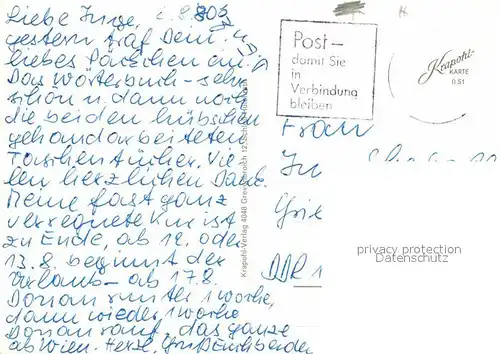 Liebe Inge, 2.8.80
gestern traf Dein
liebes Päckchen an.
Das Wörterbuch - sehr
schön u. dann noch
die beiden hübschen
gehandarbeiteten
Taschentücher. Vie
len herzlichen Dank.
Meine fast ganz
verregnete Kur ist
zu Ende, ab 12. oder
13.8. beginnt der
Urlaub - ab 17.8.
Donau runter 1 Woche,
dann wieder 1 Woche
Donau rauf, das ganze
ab Wien. Herzl. Grüße Euch beiden
Krapohl-Verlag 4048 Grevenbroich 12
Post -
damit Sie
in
Verbindung
bleiben
Krapohl-
KARTE
0.51
Frau
DDR 1
privacy protection
Datenschutz